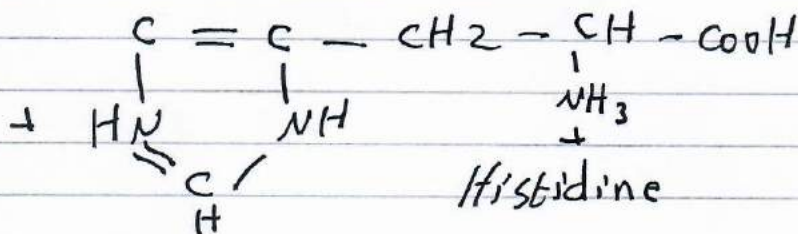 C = C - CH2 - CH - COOH
+ HN NH NH3
+
C
H
Histidine